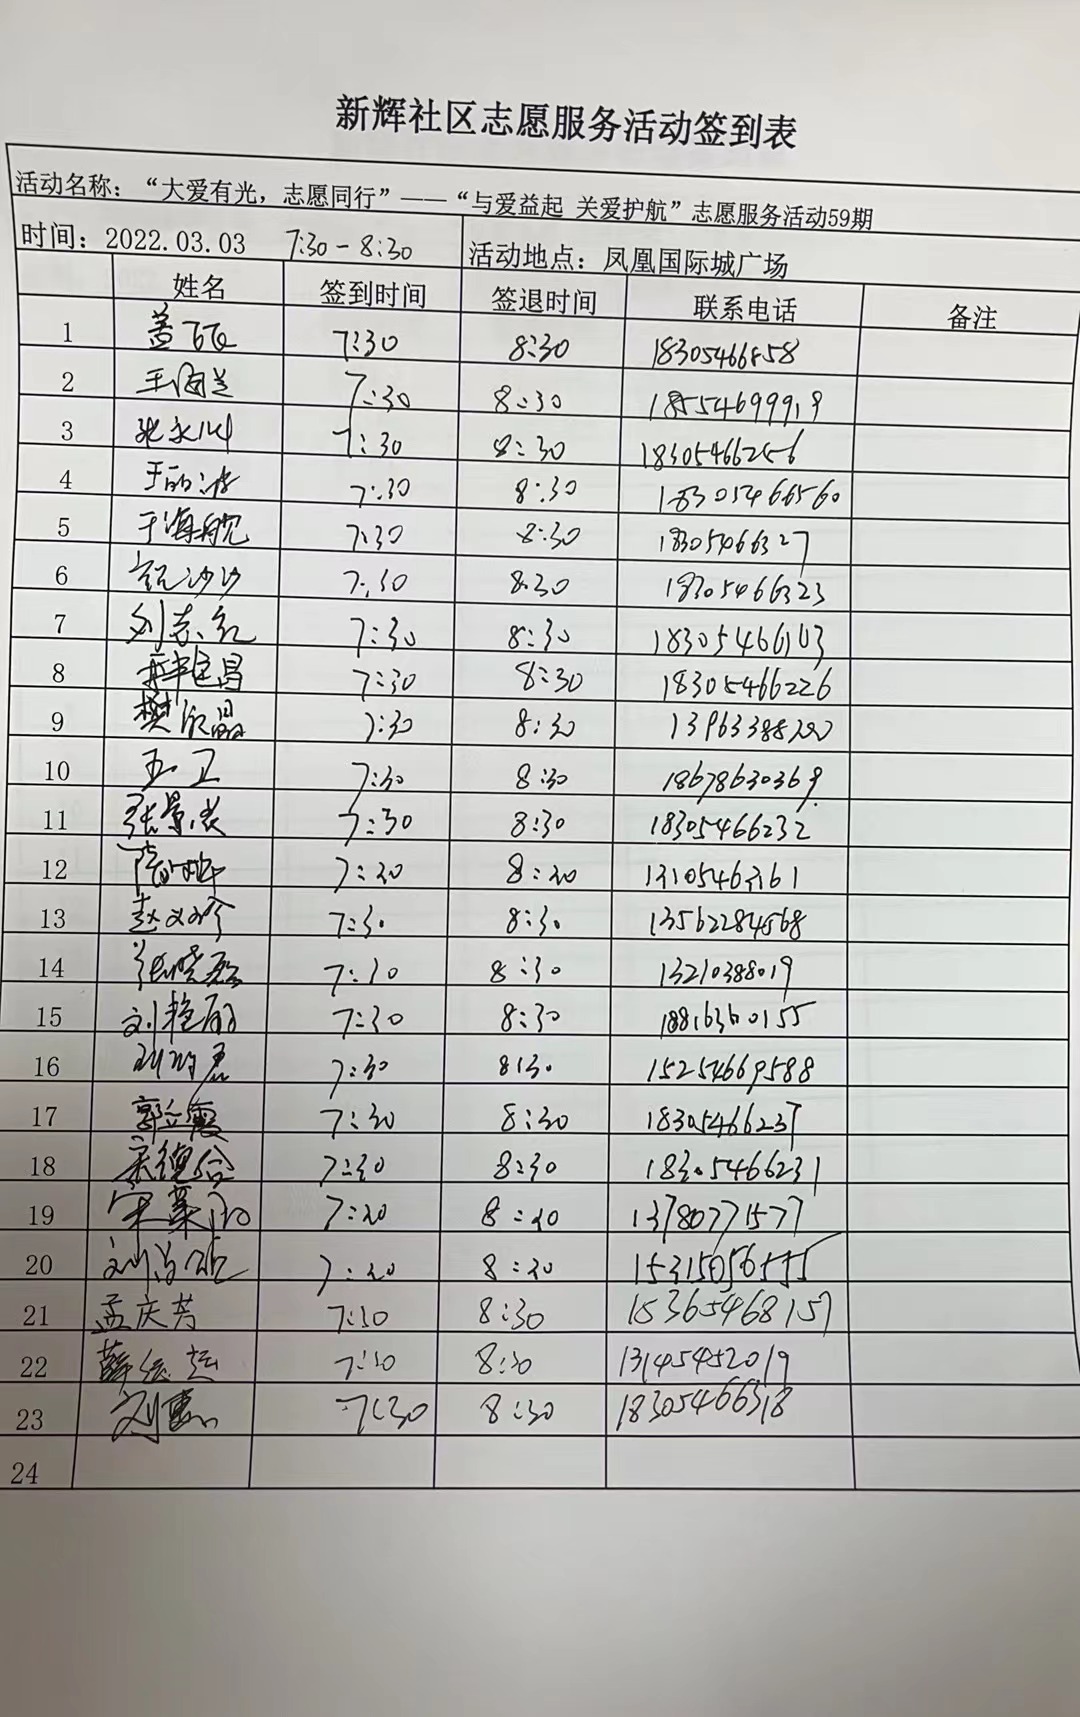 新辉社区志愿服务活动签到表
活动名称：“大爱有光，志愿同行”——“与爱益起 关爱护航”志愿服务活动59期
时间：2022.03.03 7:30-8:30 活动地点：凤凰国际城广场
姓名 签到时间 签退时间 联系电话 备注
1 7:30 8:30 18305466858
2 王海兰 7:30 8:30 18554699919
3 张永川 7:30 8:30 18305466256
4 7:30 8:30 18305466560
5 于海舰 7:30 8:30 18305466327
6 沙沙 7:30 8:30 18305466323
7 刘志红 7:30 8:30 18305466103
8 8:30 7:30 18305466226
9 樊欣晶 7:30 8:30
10 王卫 7:30 8:30 18678630369
11 张景 7:30 8:30 18305466232
12 7:30 8:30 13105463161
13 赵 7:30 8:30 13562284568
14 张晓磊 7:30 8:30 13210388019
15 刘艳丽 7:30 8:30
16 7:30 8:30 15254669588
17 郭立霞 7:30 8:30 18305466237
18 宋德合 7:30 8:30 18305466231
19 宋 7:30 8:30 13780771577
20 刘 7:30 8:30
21 孟庆芳 7:30 8:30 15365468157
22 薛 7:30 8:30 13145452019
23 刘惠 7:30 8:30 18305466318
24